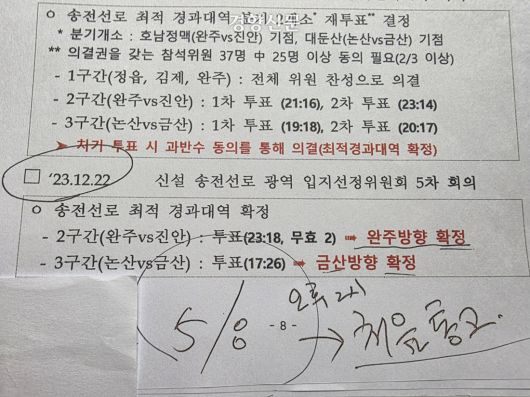 ㅇ 송전선로 최적 경과대역 분기 2개소* 재투표** 결정
경향신문
* 분기개소 : 호남정맥(완주vs진안) 기점, 대둔산(논산vs금산) 기점
** 의결권을 갖는 참석위원 37명 中 25명 이상 동의 필요(2/3 이상)
- 1구간(정읍, 김제, 완주) : 전체 위원 찬성으로 의결
- 2구간(완주vs진안) : 1차 투표 (21:16), 2차 투표 (23:14)
- 3구간(논산vs금산) : 1차 투표 (19:18), 2차 투표 (20:17)
➤ 차기 투표 시 과반수 동의를 통해 의결(최적경과대역 확정)
□ '23.12.22 신설 송전선로 광역 입지선정위원회 5차 회의
ㅇ 송전선로 최적 경과대역 확정
- 2구간(완주vs진안) : 투표(23:18, 무효 2) ➡ 완주방향 확정
- 3구간(논산vs금산) : 투표(17:26) ➡ 금산방향 확정
오후 2시
5/8 → 처음 통고.
- 8 -